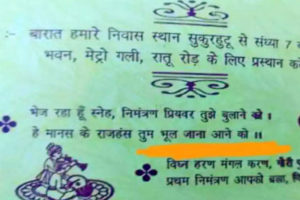 ः- बारात हमारे निवास स्थान सुकुरहुटू से संध्या 7
भवन, मेट्रो गली, रातू रोड़ के लिए प्रस्थान
भेज रहा हूँ स्नेह, निमंत्रण प्रियवर तुझे बुलाने को ।
हे मानस के राजहंस तुम भूल जाना आने को ।।
विघ्न हरण मंगल करण,
प्रथम निमंत्रण आपको